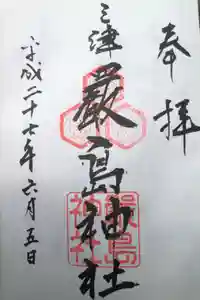 奉拝
三津
厳島神社
平成二十七年六月五日
厳島
神社